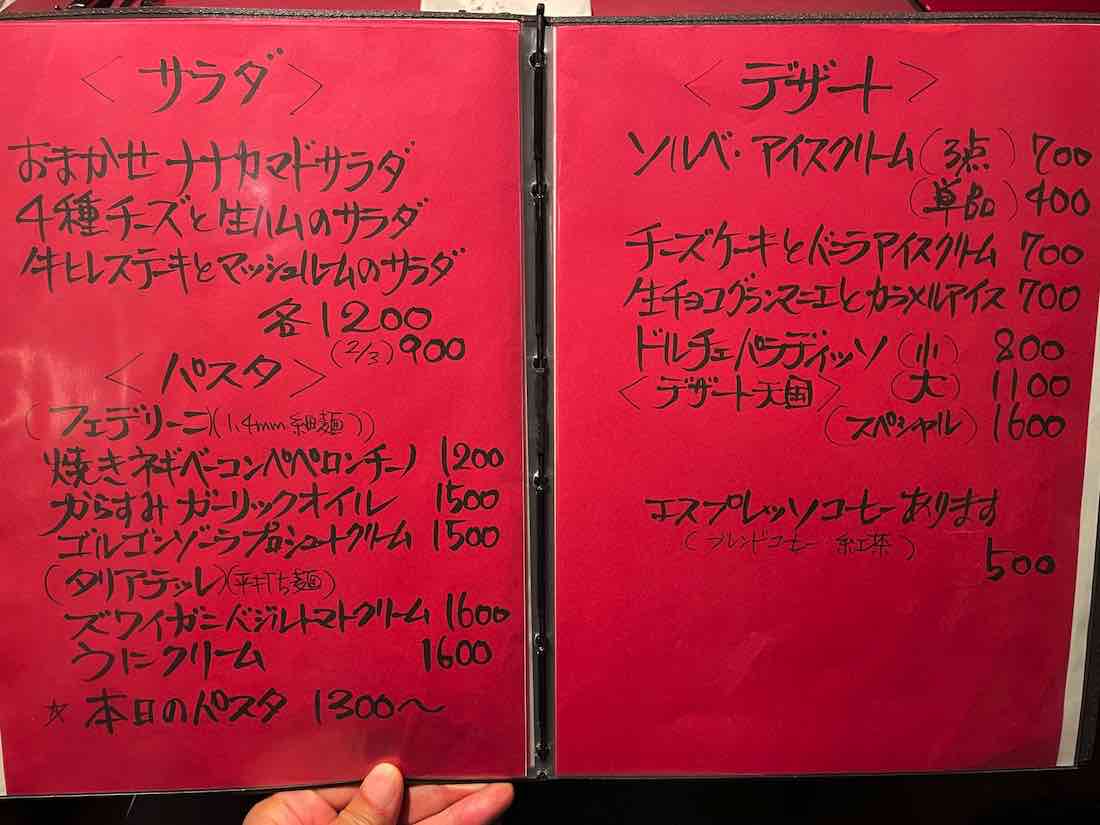 〈サラダ〉
おまかせナナカマドサラダ
4種チーズと生ハムのサラダ
牛ヒレステーキとマッシュルームのサラダ
各1200
(2/3)900
〈パスタ〉
(フェデリーニ)(1.4mm細麺)
焼きネギベーコンペペロンチーノ 1200
からすみガーリックオイル 1500
ゴルゴンゾーラプロシュートクリーム 1500
(タリアテッレ)(平打ち麺)
ズワイガニバジルトマトクリーム 1600
うにクリーム 1600
☆本日のパスタ 1300〜
〈デザート〉
ソルベ・アイスクリーム(3点) 700
(単品) 400
チーズケーキとバニラアイスクリーム 700
生チョコグランマニエとカラメルアイス 700
ドルチェパラディッソ (小) 800
〈デザート天国〉 (大) 1100
(スペシャル) 1600
エスプレッソコーヒーあります
(ブレンドコーヒー 紅茶)
500